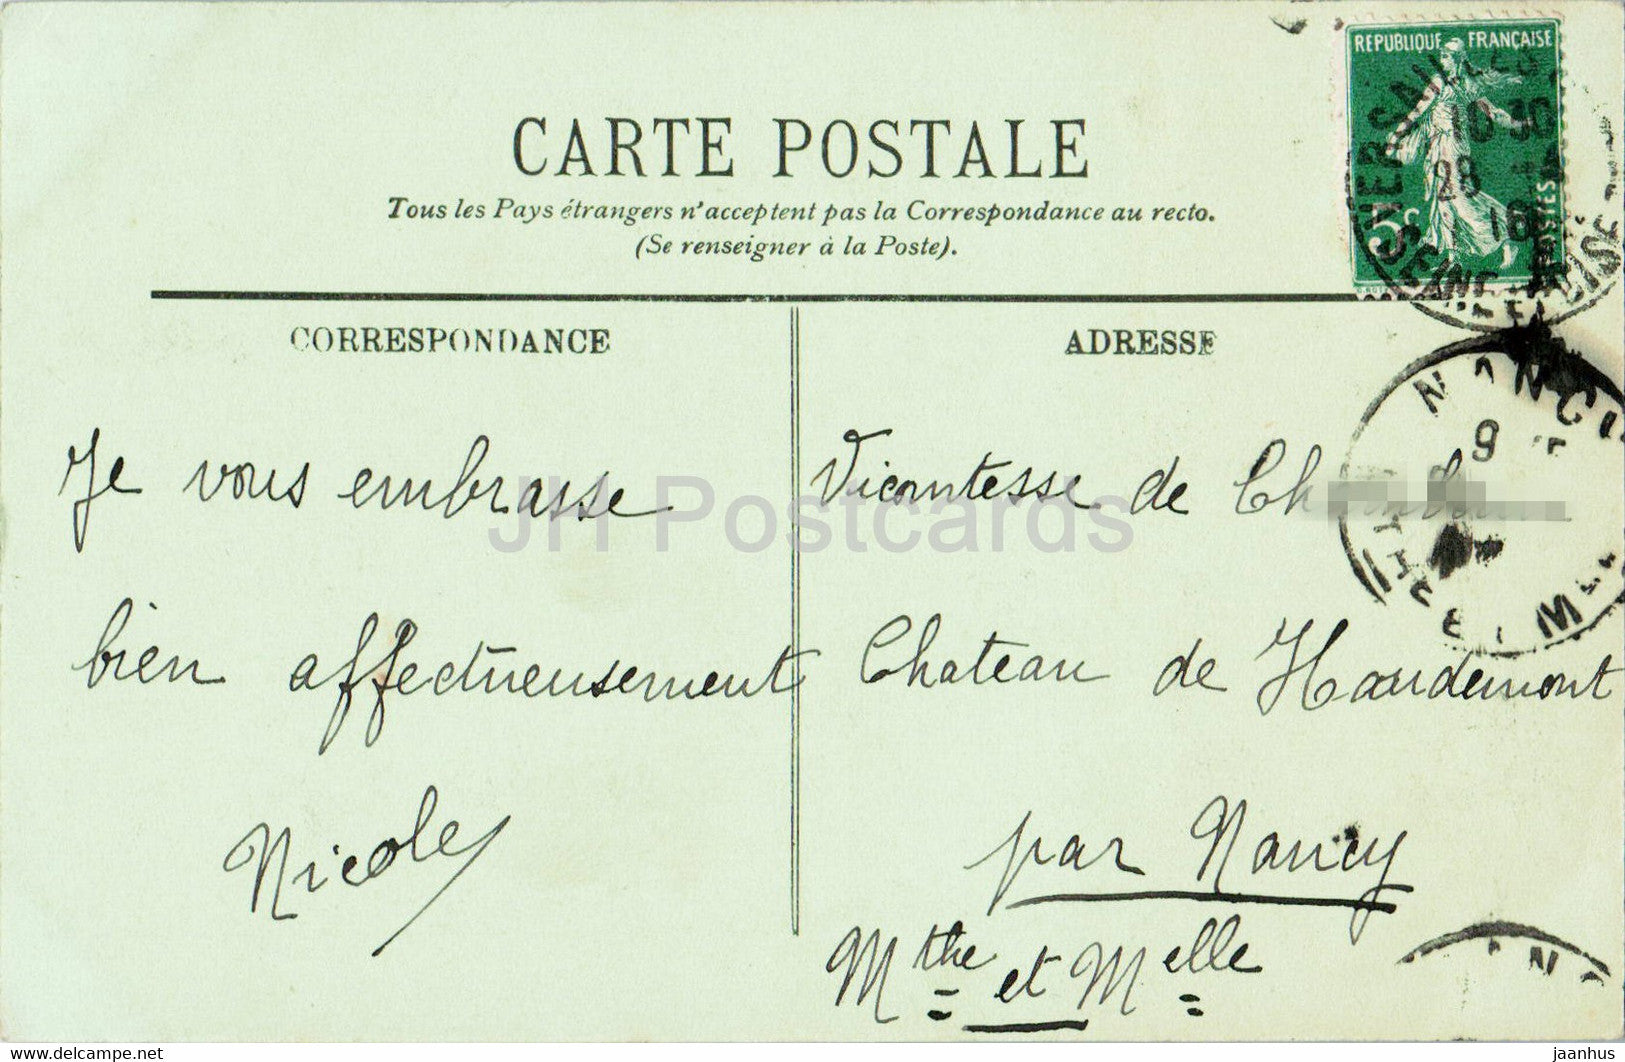 CARTE POSTALE
Tous les Pays étrangers n'acceptent pas la Correspondance au recto.
(Se renseigner à la Poste).
REPUBLIQUE FRANÇAISE
5c
POSTES
VERSAILLES
10 30
28
SEINE ET OISE
CORRESPONDANCE
ADRESSE
Je vous embrasse
bien affectueusement
Nicole
Vicomtesse de
Chateau de Haudemont
par Nancy
Mthe et Melle
NANCY
JH Postcards
https://www.delcampe.net
jaanhus